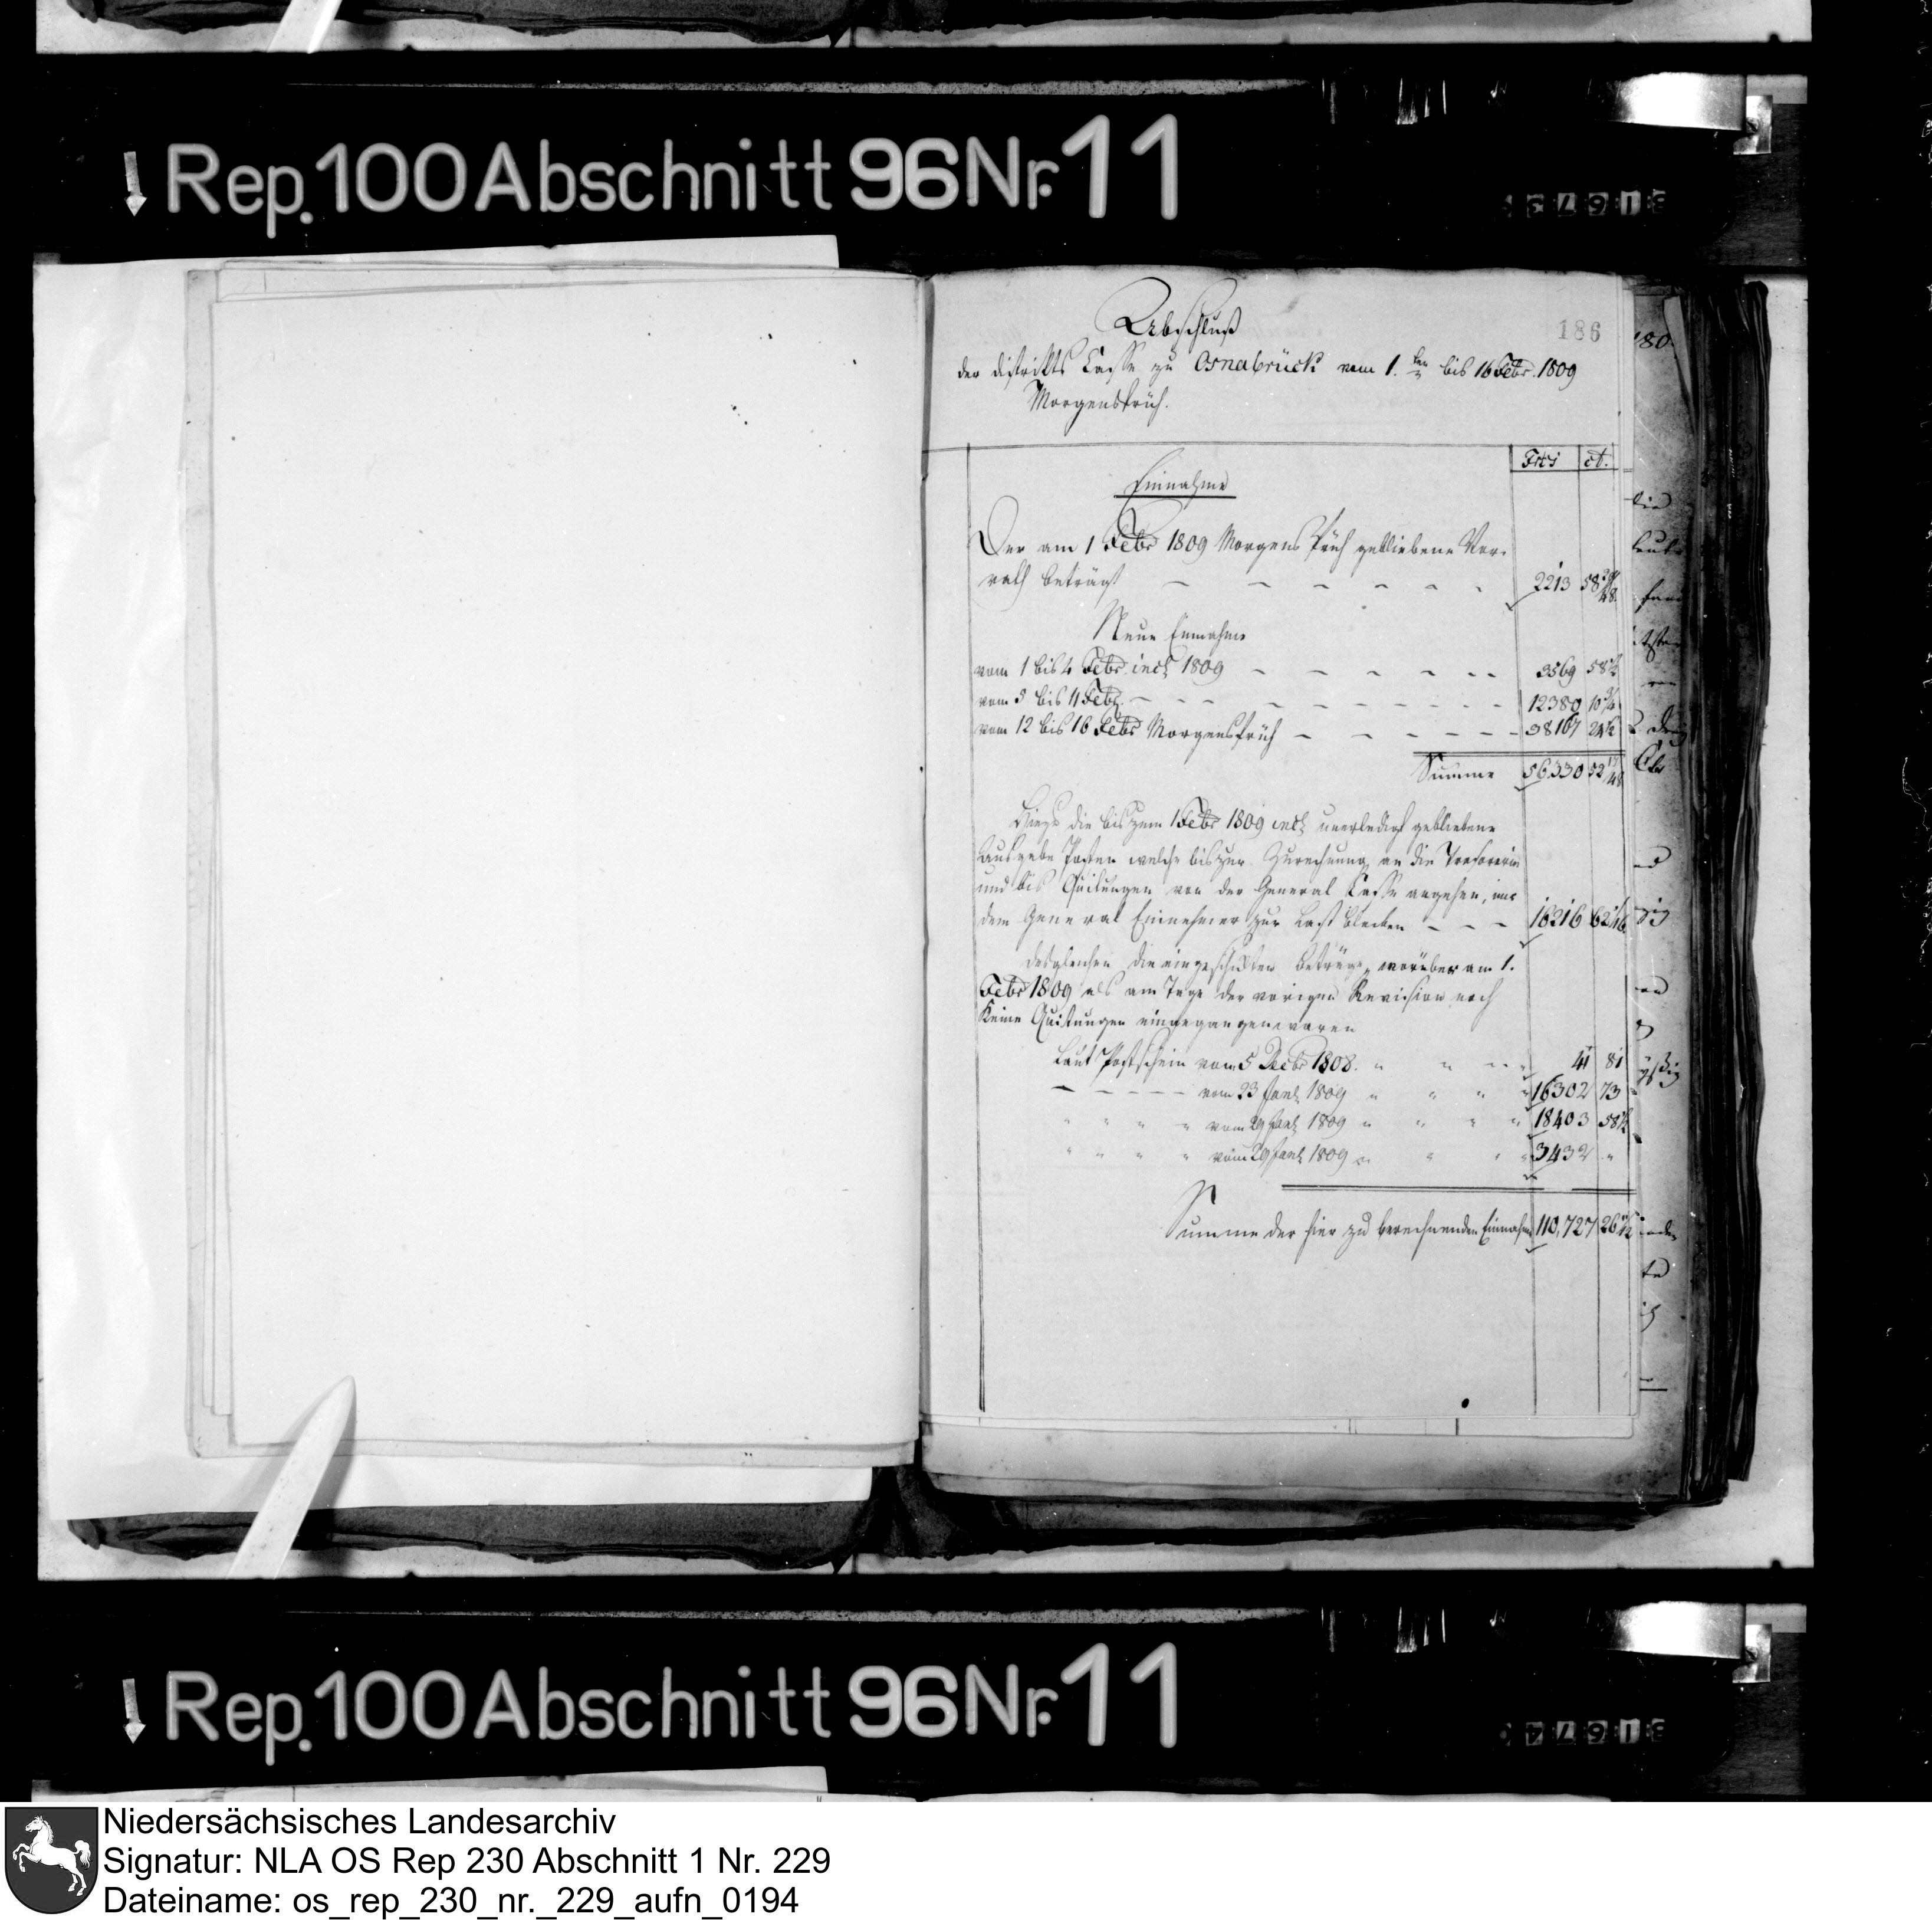 Rep. 100 Abschnitt 96 Nr. 11
186
Abschluß
der Distrikts Casse zu Osnabrück vom 1.ten bis 16 Febr. 1809
Morgens früh.
Frcs ct.
Einnahme
Der am 1 Febr 1809 Morgens früh gebliebene Vor-
rath beträgt 2213 58
Neue Einnahme
vom 1 bis 4 Febr incl 1809 3569 58 1/2
vom 5 bis 11 Febr. 12380 10 3/4
vom 12 bis 16 Febr Morgens früh 38167 24 1/2
Summe 56330 52 17/48
Hiezu die bis zum 1 Febr 1809 incl unerledigt gebliebene
Ausgabe Posten welche bis zur Zurechnung an die
und bis Quitungen von der General Casse angehen,
dem General Einnehmer zur Last bleiben 16216 62 1/16
desgleichen die eingeschickten beträge, worüber am 1.
Febr 1809 als am Tage der vorigen Revision noch
keine Quitungen eingegangen waren
Laut Postschein vom 5 Decbr 1808. 41 81
vom 23 Janr 1809 16302 73
vom 29 Janr 1809 18403 58 1/2
vom 29 Janr 1809 3432 "
Summe der hier zu berechnenden Einnahme 110,727 26
Rep. 100 Abschnitt 96 Nr. 11
Niedersächsisches Landesarchiv
Signatur: NLA OS Rep 230 Abschnitt 1 Nr. 229
Dateiname: os_rep_230_nr._229_aufn_0194